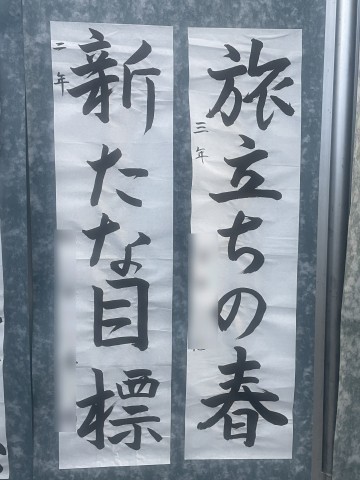 旅立ちの春
三年
新たな目標
二年